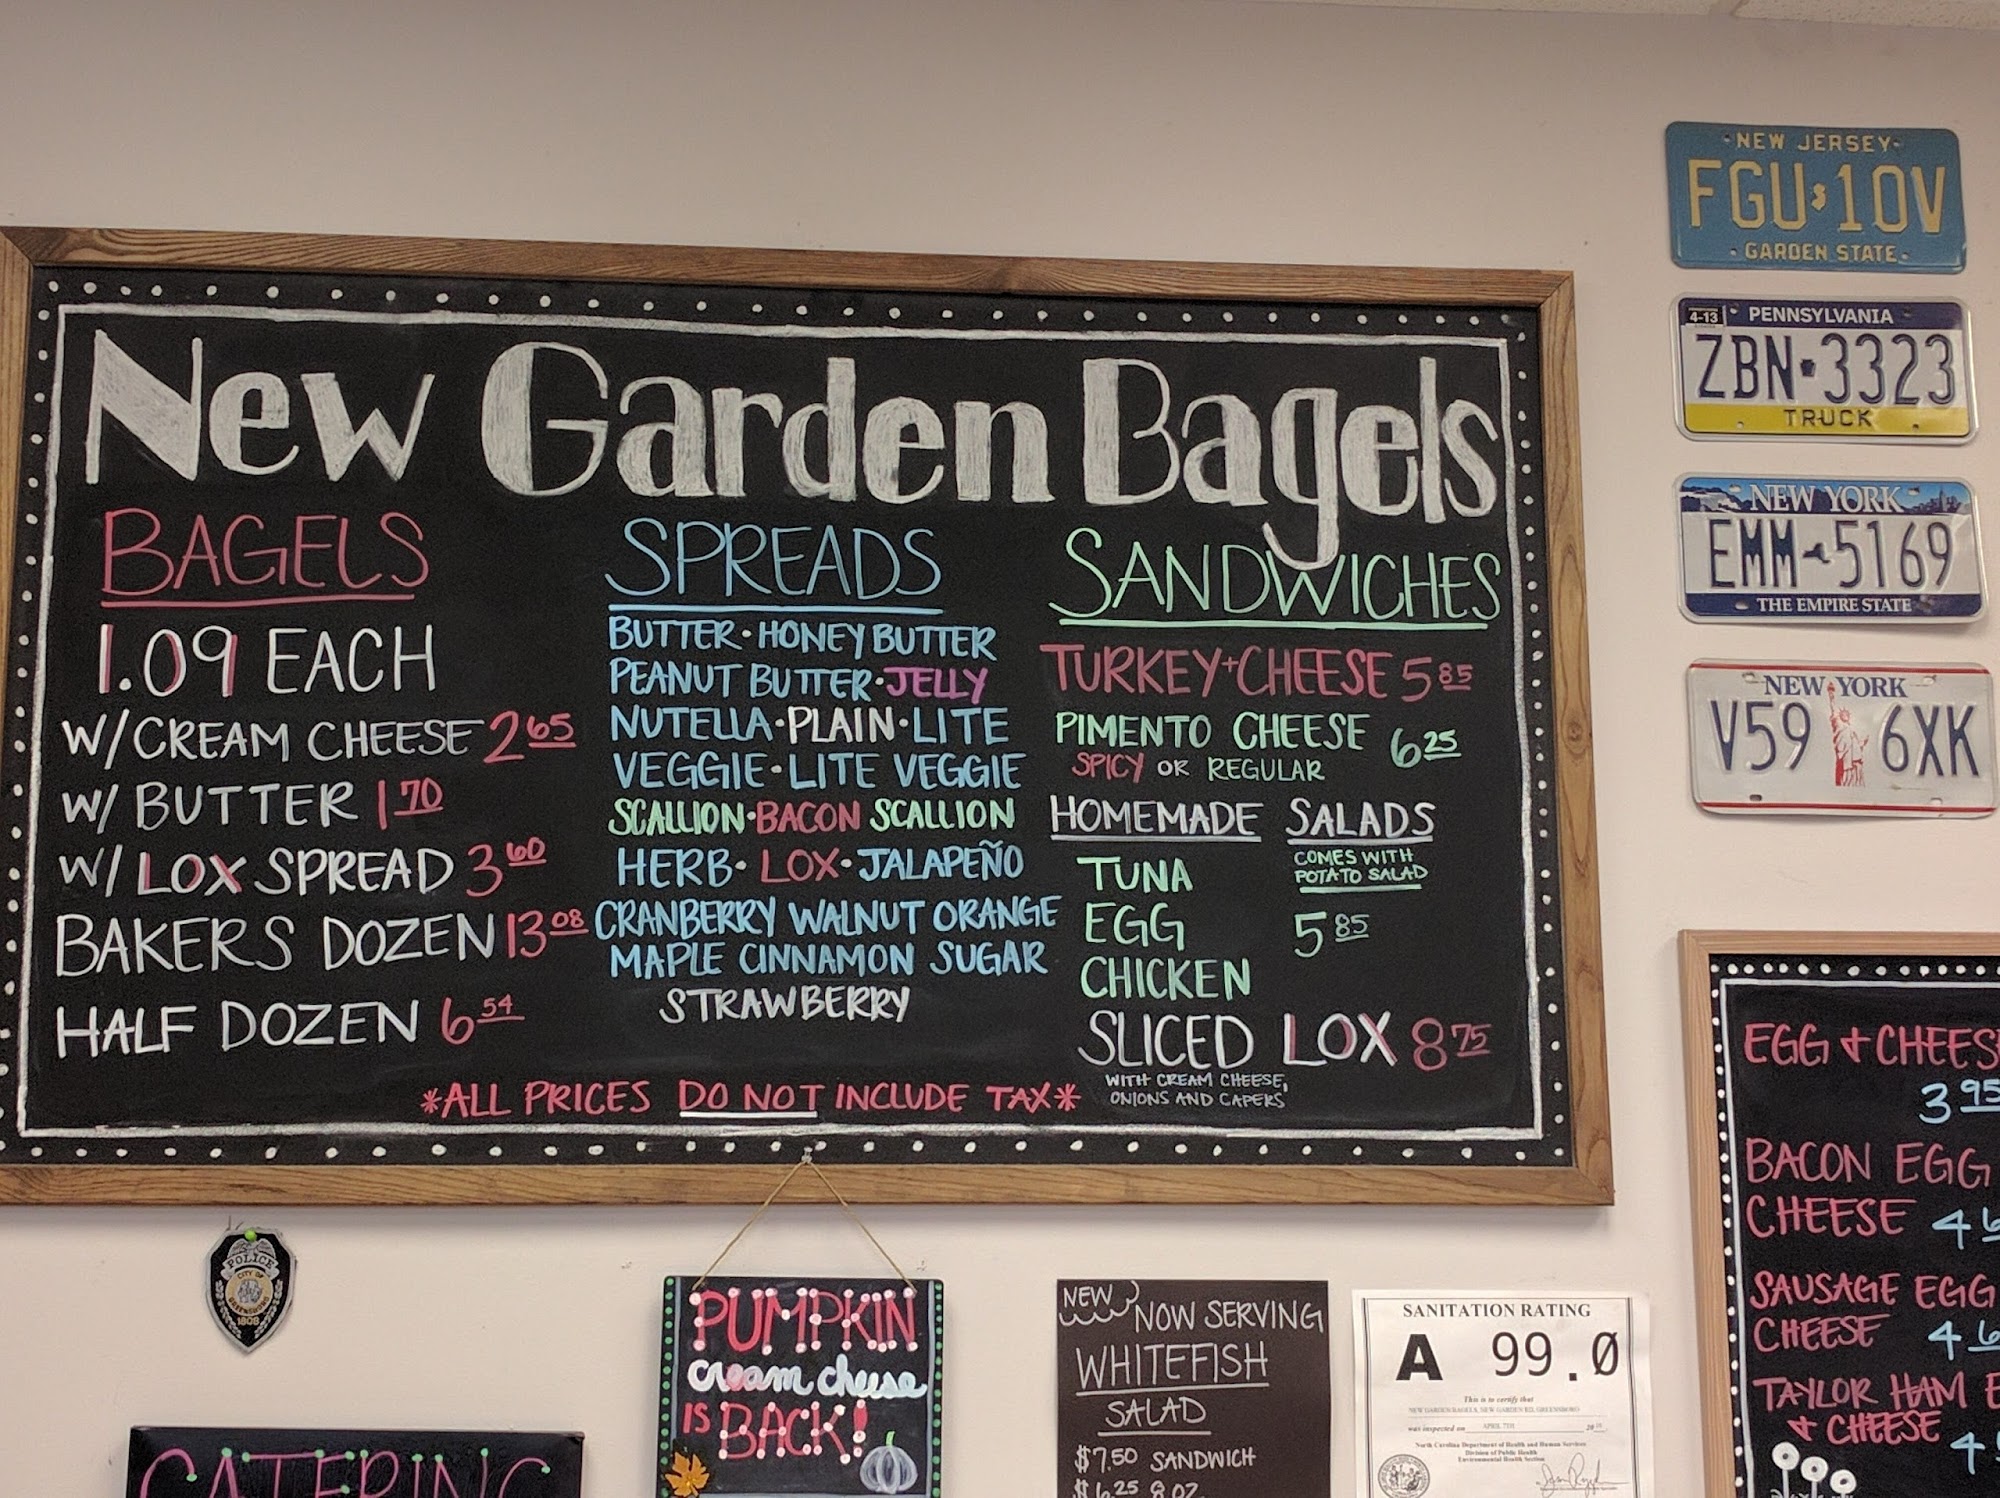 New Garden Bagels
BAGELS
1.09 EACH
W/ CREAM CHEESE 2 65
W/ BUTTER 1 70
W/ LOX SPREAD 3 60
BAKERS DOZEN 13 08
HALF DOZEN 6 54
SPREADS
BUTTER · HONEY BUTTER
PEANUT BUTTER · JELLY
NUTELLA · PLAIN · LITE
VEGGIE · LITE VEGGIE
SCALLION · BACON SCALLION
HERB · LOX · JALAPEÑO
CRANBERRY WALNUT ORANGE
MAPLE CINNAMON SUGAR
STRAWBERRY
SANDWICHES
TURKEY + CHEESE 5 85
PIMENTO CHEESE 6 25
SPICY OR REGULAR
HOMEMADE SALADS
COMES WITH
POTATO SALAD
TUNA
EGG
CHICKEN
5 85
SLICED LOX 8 75
WITH CREAM CHEESE,
ONIONS AND CAPERS
*ALL PRICES DO NOT INCLUDE TAX*
NEW JERSEY
FGU 10V
GARDEN STATE
4-13
PENNSYLVANIA
ZBN 3323
TRUCK
NEW YORK
EMM 5169
THE EMPIRE STATE
NEW YORK
V59 6XK
EGG + CHEES
3 95
BACON EGG
CHEESE 4
SAUSAGE EGG
CHEESE 4
TAYLOR HAM E
+ CHEESE
4
POLICE
CITY OF
GREENSBORO
1808
CATERING
PUMPKIN
cream cheese
IS BACK!
NEW
NOW SERVING
WHITEFISH
SALAD
$7.50 SANDWICH
$6.25 8 OZ
SANITATION RATING
A 99.0
This is to certify that
NEW GARDEN BAGELS, NEW GARDEN RD, GREENSBORO
was inspected on APRIL 7TH 20
North Carolina Department of Health and Human Services
Division of Public Health
Environmental Health Section